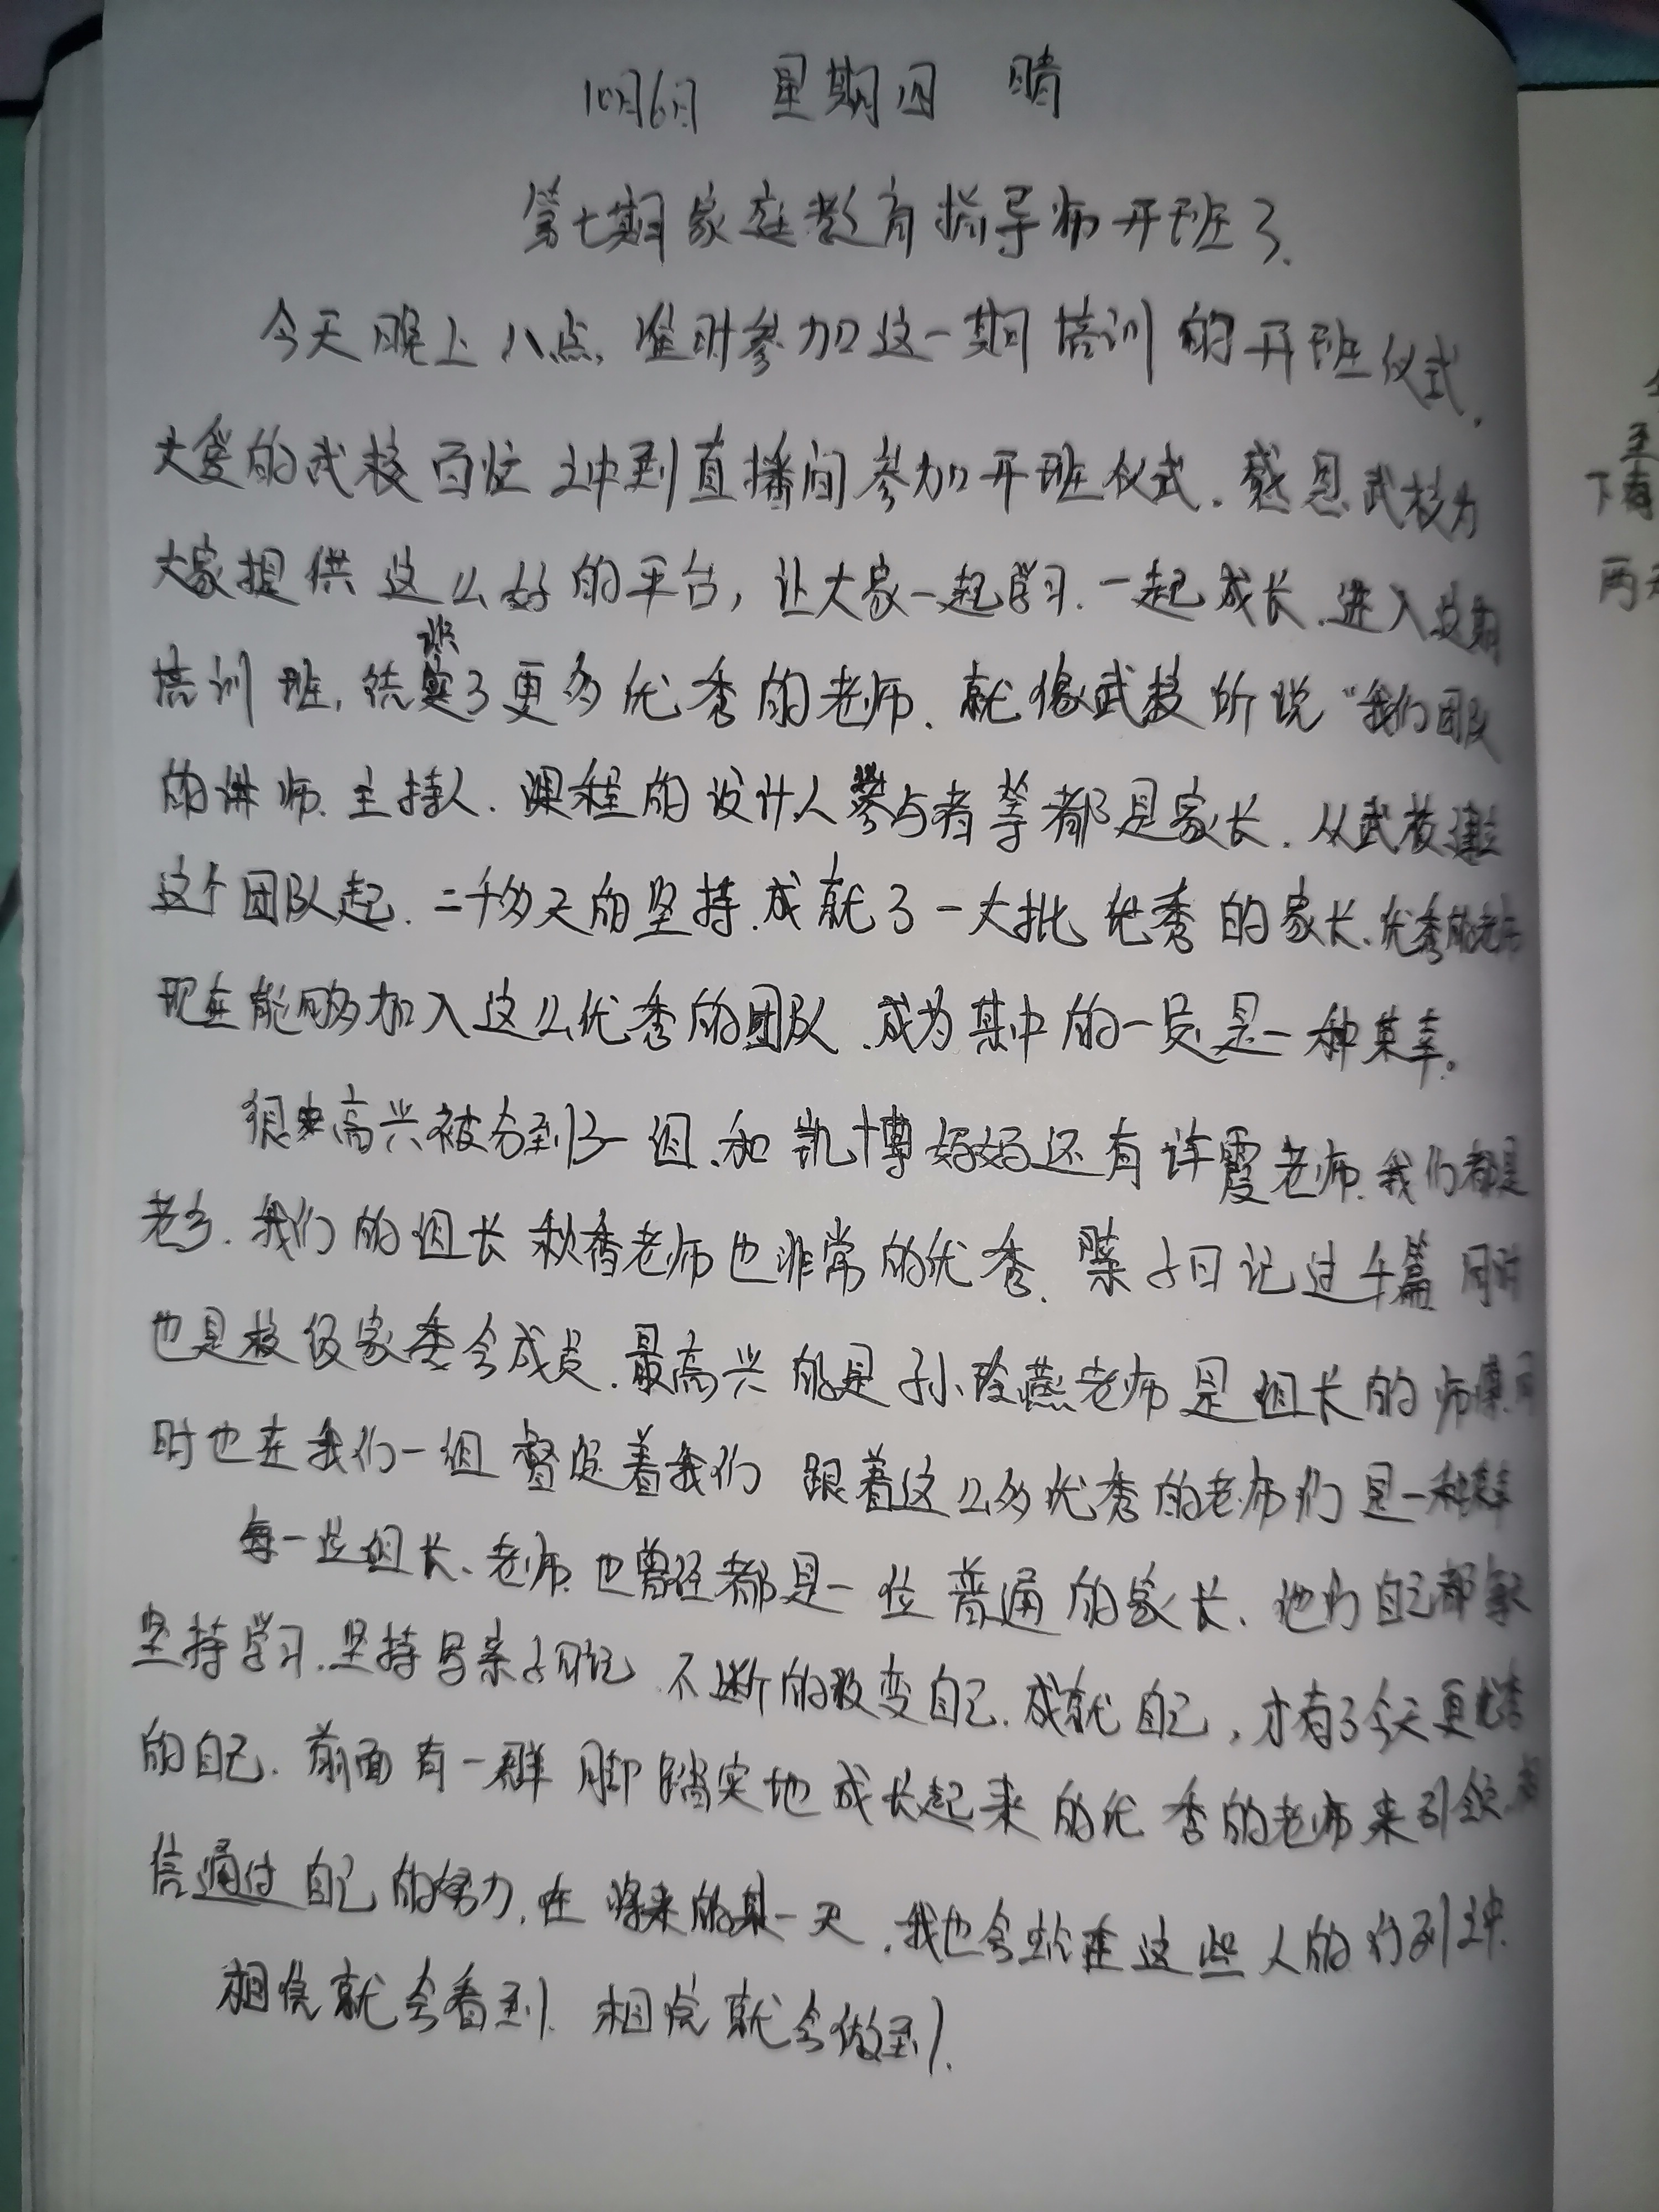 10月6日 星期四 晴
第七期家庭教育指导师开班了.
今天晚上八点,准时参加这一期培训的开班仪式.
大爱的武校百忙之中到直播间参加开班仪式.感恩武校为
大家提供这么好的平台,让大家一起学习.一起成长.进入这期
培训班,结识了更多优秀的老师.就像武校所说“我们团队
的讲师.主持人.课程的设计人参与者等都是家长.从武校建立
这个团队起.二千多天的坚持.成就了一大批优秀的家长.优秀的老师
现在能够加入这么优秀的团队.成为其中的一员是一种荣幸。
很高兴被分到13一组.和凯博妈妈还有许霞老师.我们都是
老乡.我们的组长秋香老师也非常的优秀.亲子日记过千篇同时
也是校级家委会成员.最高兴的是孙玲燕老师是组长的师傅.同
时也在我们一组督促着我们 跟着这么多优秀的老师们是一种
每一些组长、老师.也曾经都是一位普通的家长、他们自己都
坚持学习.坚持写亲子日记 不断的改变自己.成就自己,才有了今天更优秀
的自己.前面有一群脚踏实地成长起来的优秀的老师来引领.相
信通过自己的努力,在将来的某一天.我也会站在这些人的行列之中.
相信就会看到.相信就会做到.
至
下有
两